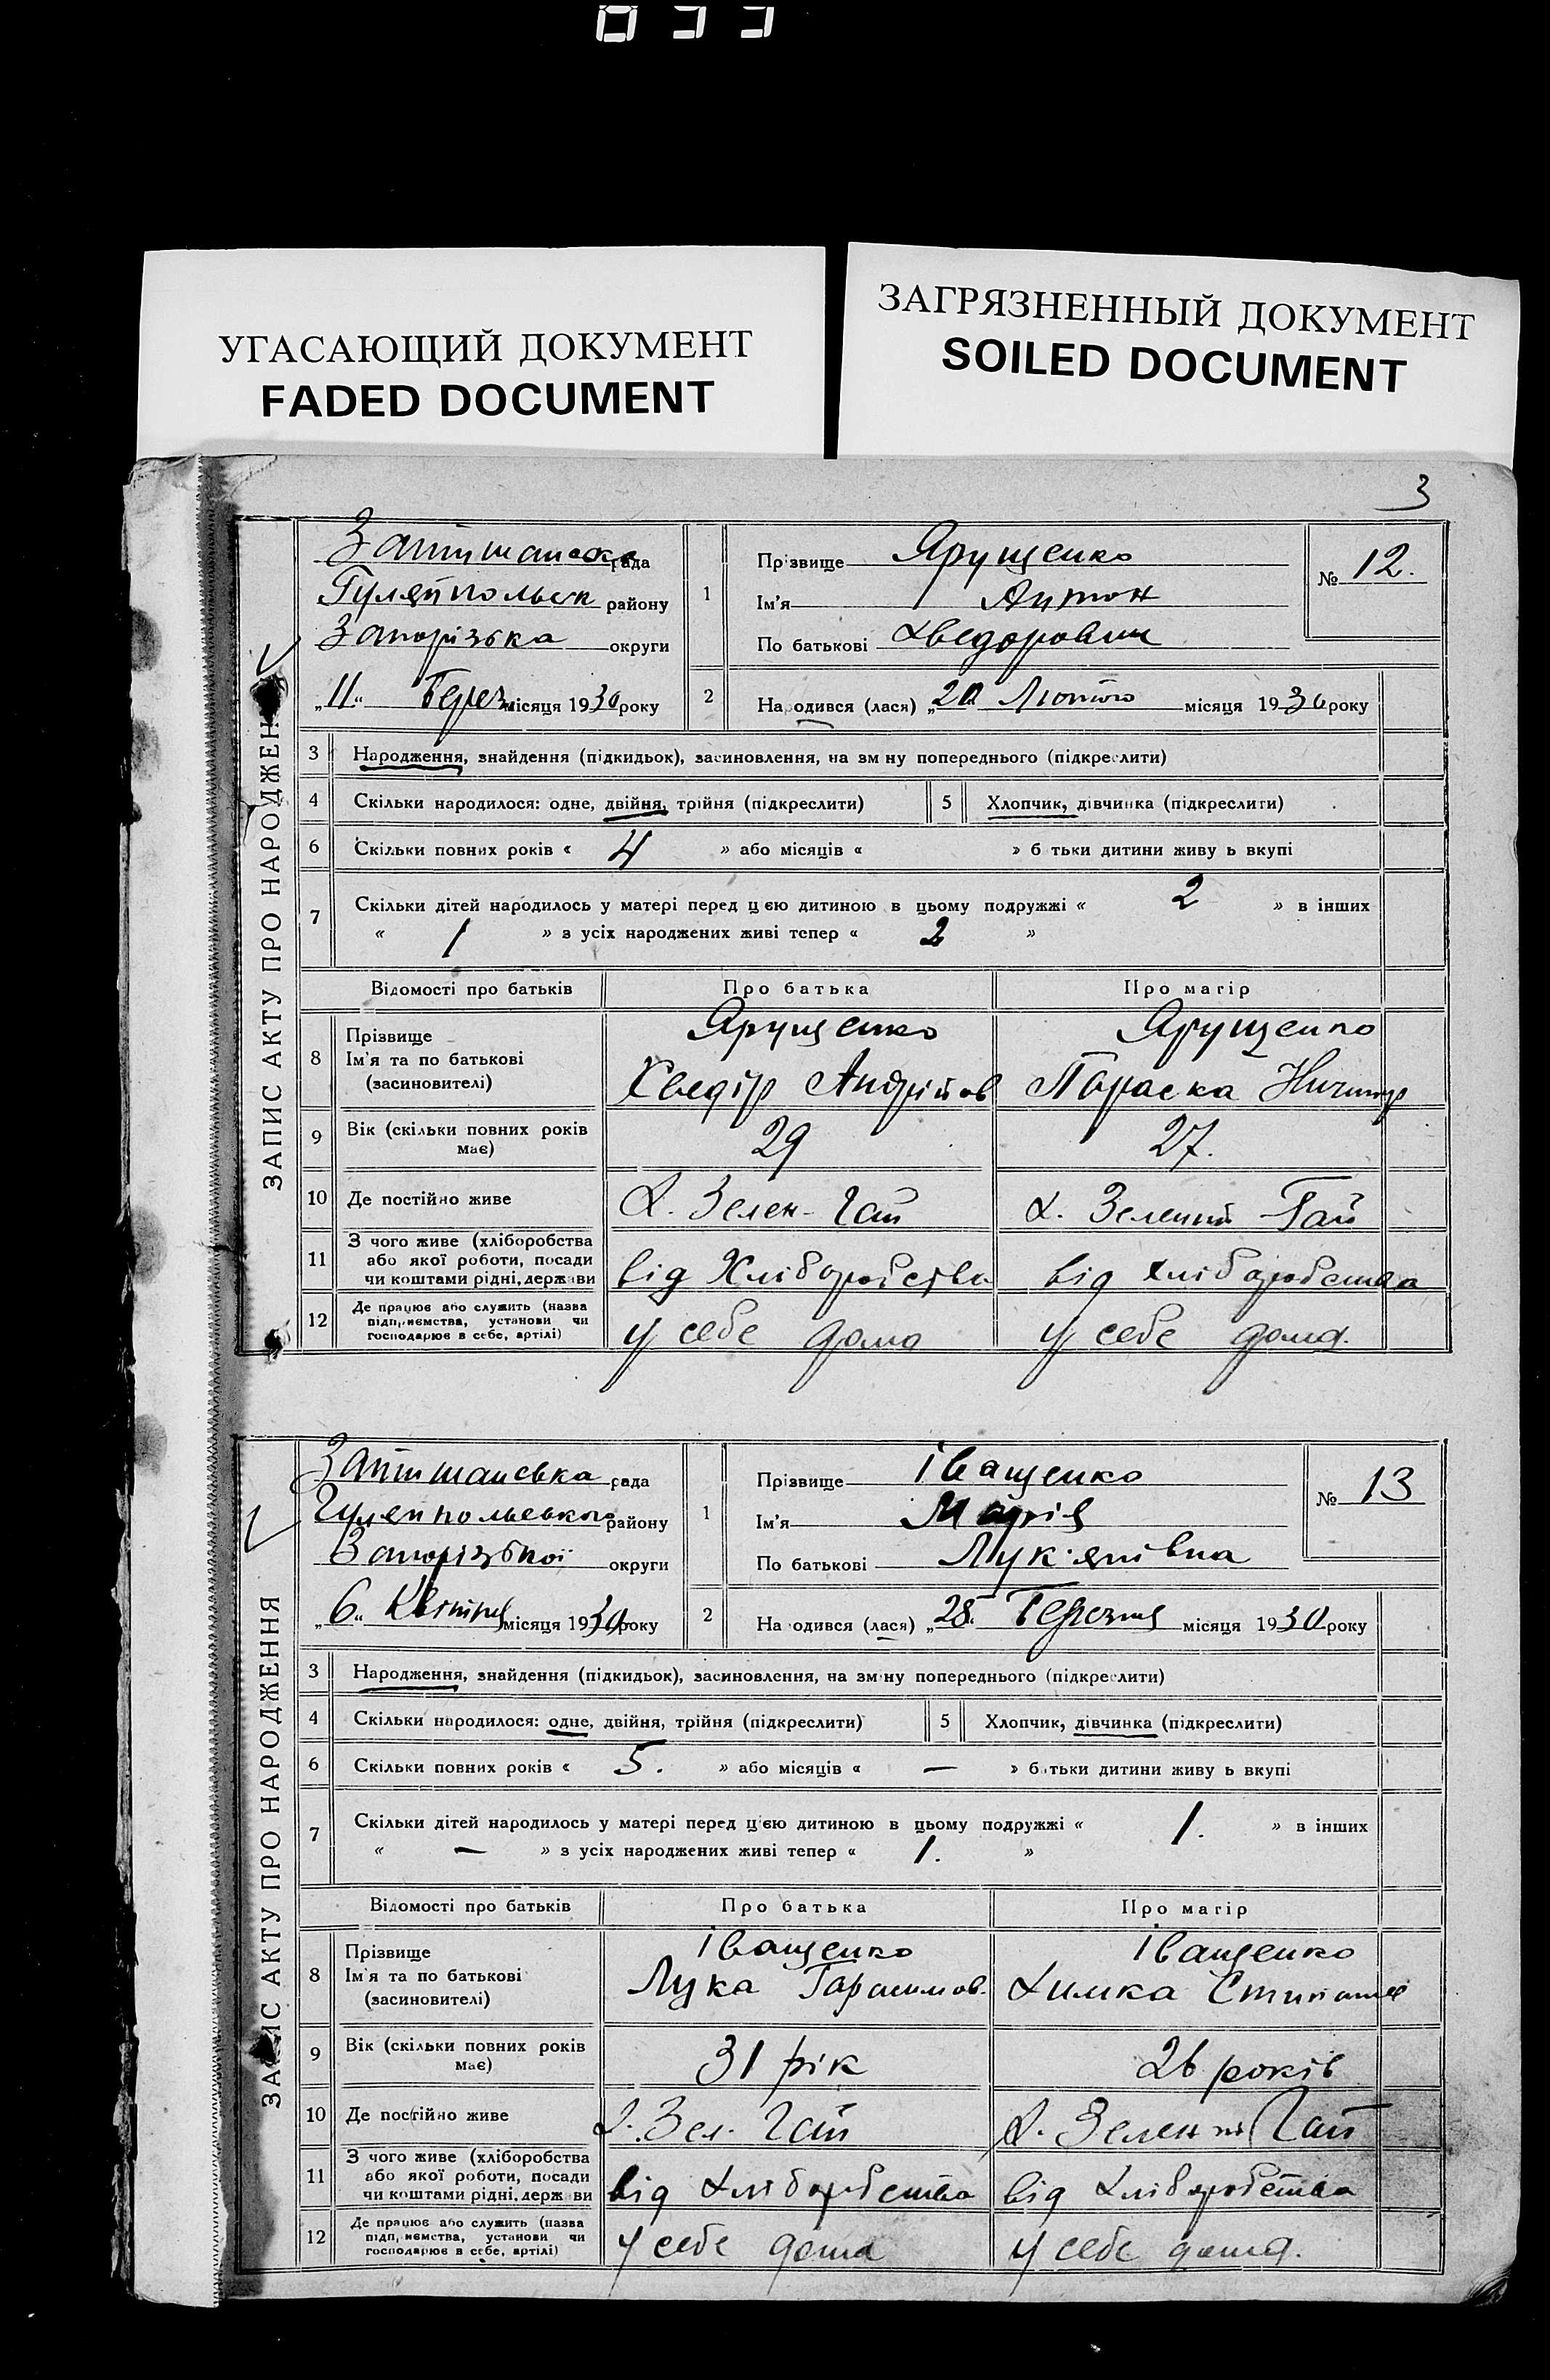 033
УГАСАЮЩИЙ ДОКУМЕНТ
FADED DOCUMENT
ЗАГРЯЗНЕННЫЙ ДОКУМЕНТ
SOILED DOCUMENT
3
ЗАПИС АКТУ ПРО НАРОДЖЕН
Затишанська рада
Гуляйпольськ району
Запорізька округи
„11“ Берез місяця 1930 року
1
Прізвище Ярущенко
Ім'я Антон
По батькові Хведорович
№ 12.
2
Народився (лася) „20 Лютого місяця 1930 року
3 Народження, знайдення (підкидьок), засиновлення, на зм ну попереднього (підкреслити)
4 Скільки народилося: одне, двійня, трійня (підкреслити)
5 Хлопчик, дівчинка (підкреслити)
6 Скільки повних років « 4 » або місяців « » б тьки дитини живу ь вкупі
7 Скільки дітей народилось у матері перед цією дитиною в цьому подружжі « 2 » в інших
« 1 » з усіх народжених живі тепер « 2 »
Відомості про батьків Про батька Про матір
8 Прізвище
Ім'я та по батькові
(засиновителі)
Ярущенко
Хведір Андрійов
Ярущенко
Параска Ничипур
9 Вік (скільки повних років
має)
29 27.
10 Де постійно живе Х. Зелен-Гай х. Зелений Гай
11 З чого живе (хліборобства
або якої роботи, посади
чи коштами рідні, держави
від Хліборобства від хліборобства
12 Де працює або служить (назва
підприємства, установи чи
господарює в себе, артілі)
у себе дома у себе дома.
ЗАПИС АКТУ ПРО НАРОДЖЕННЯ
Затишанська рада
Гуляйпольського району
Запорізької округи
„6“ Квітня місяця 1930 року
1
Прізвище Іващенко
Ім'я Марія
По батькові Лук'янівна
№ 13
2
На одився (лася) „28“ Березня місяця 1930 року
3 Народження, знайдення (підкидьок), засиновлення, на зміну попереднього (підкреслити)
4 Скільки народилося: одне, двійня, трійня (підкреслити)
5 Хлопчик, дівчинка (підкреслити)
6 Скільки повних років « 5. » або місяців « — » батьки дитини живу ь вкупі
7 Скільки дітей народилось у матері перед цією дитиною в цьому подружжі « 1. » в інших
« — » з усіх народжених живі тепер « 1. »
Відомості про батьків Про батька Про матір
8 Прізвище
Ім'я та по батькові
(засиновителі)
Іващенко
Лука Гарасимов.
Іващенко
Химка
9 Вік (скільки повних років
має)
31 рік 26 років
10 Де постійно живе Х. Зел. Гай Х. Зелений Гай
11 З чого живе (хліборобства
або якої роботи, посади
чи коштами рідні, держави
від хліборобства від хліборобства
12 Де працює або служить (назва
підприємства, установи чи
господарює в себе, артілі)
у себе дома у себе дома.